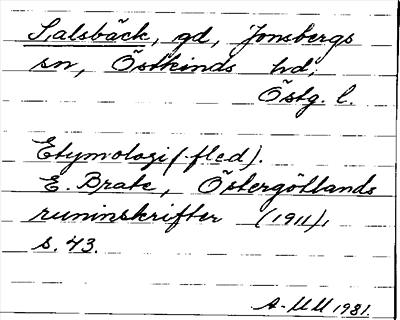 Salsbäck, gd, Jonsbergs
sn, Östkinds hd,
Östg. l.
Etymologi (fled).
E. Brate, Östergötlands
runinskrifter (1911),
s. 43.
A-MM 1981.